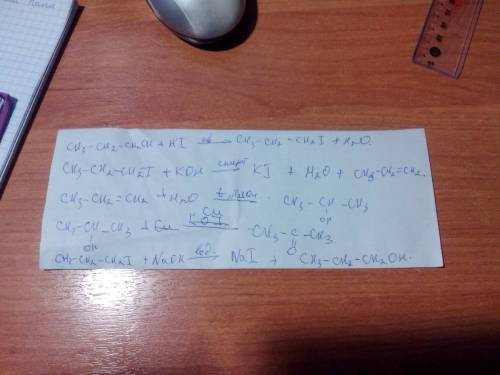 CH3-CH2-CH2OH + HI → CH3-CH2-CH2I + H2O.
CH3-CH2-CH2I + KOH спирт KI + H2O + CH3-CH=CH2.
CH3-CH2=CH2 + H2O CH3-CH-CH3
OH
CH3-CH-CH3 + Cu CH3-C-CH3.
OH O
CH3-CH2-CH2I + NaOH вод. NaI + CH3-CH2-CH2OH.